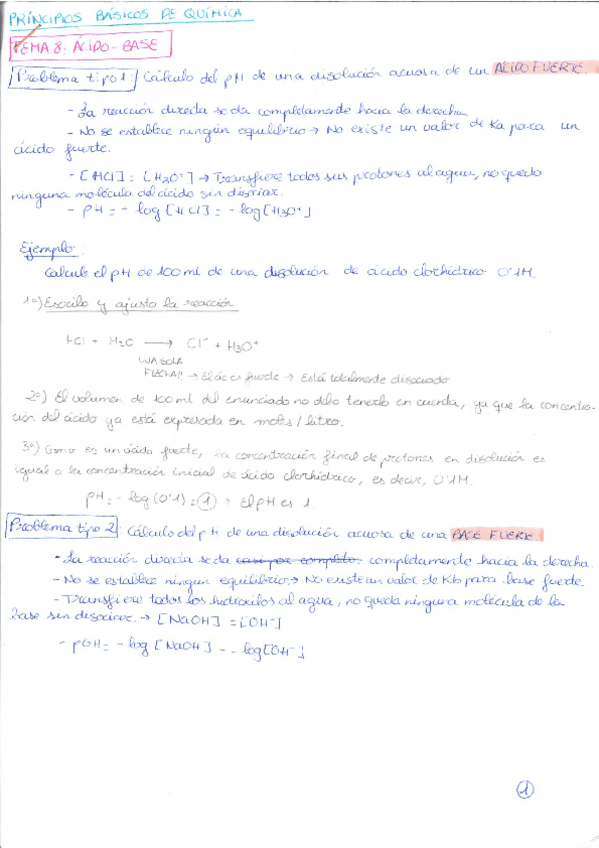 PRINCIPIOS BÁSICOS DE QUÍMICA
TEMA 8: ÁCIDO-BASE
Problema tipo 1: Cálculo del pH de una disolución acuosa de un ÁCIDO FUERTE.
- La reacción directa se da completamente hacia la derecha.
- No se establece ningún equilibrio → No existe un valor de Ka para un
ácido fuerte.
- [HCl] = [H3O+] → Transfiere todos sus protones al agua, no queda
ninguna molécula del ácido sin disociar.
- pH = - log [HCl] = - log [H3O+]
Ejemplo:
Calcule el pH de 100 ml de una disolución de ácido clorhídrico 0'1M.
1º) Escribo y ajusto la reacción
HCl + H2O → Cl- + H3O+
UNA SOLA
FLECHA!! → El ác es fuerte → Está totalmente disociado
2º) El volumen de 100 ml del enunciado no debo tenerlo en cuenta, ya que la concentra-
ción del ácido ya está expresada en mols/litro.
3º) Como es un ácido fuerte, la concentración final de protones en disolución es
igual a la concentración inicial de ácido clorhídrico, es decir, 0'1M.
pH = - log (0'1) = 1 → El pH es 1
Problema tipo 2: Cálculo del pH de una disolución acuosa de una BASE FUERTE.
- La reacción directa se da casi por completo completamente hacia la derecha.
- No se establece ningun equilibrio → No existe un valor de Kb para base fuerte.
- Transfiere todos los hidroxilos al agua, no queda ninguna molécula de la
base sin disociar. → [NaOH] = [OH-]
- pOH = - log [NaOH] = - log [OH-]
1